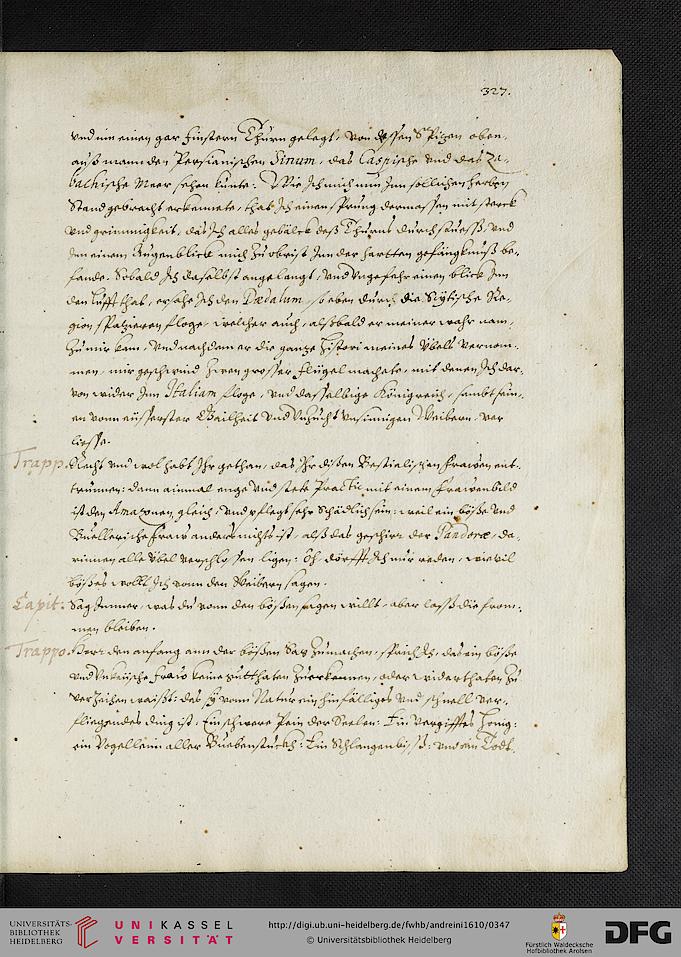 327.
vnd inn einen gar finstern Thurn gelegt, von dessen Spizen oben,
auß mann den Persianischen Sinum, das Caspische vnd das Za-
bachische Meer sehen kunte: Wie Ich mich nun Inn sollichen herben
Stand gebracht erkennete, that Ich einen Sprung dermassen mit sterck
vnd grimmigkeit, das Ich alles gebälck deß Thurns durchstuess, vnd
Inn einem Augenblick mich zu obrist Inn der hartten gefängknuß be-
fande. Sobald Ich daselbst angelangt, vnd vngefehr einen blick Inn
den lufft that, ersahe Ich den Dædalum, so eben durch die Scytische Re-
gion spatzieren floge, welcher auch, alßbald er meiner wahr nam,
zu mir kam, vnd nachdem er die gantze histori meines vbels vernom-
men, mir geschwind zwen grosser flügel machete, mit denen Ich dar-
von wider Inn Italiam floge, vnd dasselbige Königreich, sambt sein-
en vonn eüsserster Gailheit vnd Vnzucht vnsinnigen Weibern, ver
liesse.
Trapp. Recht vnd wol habt Ihr gethan, das Ihr disen Bestialischen frawen ent-
trunnen: dann ainmal enge vnd stete Practic mit einem frawenbild
ist den Amazonen gleich, vnd pflegt sehr schädlich sein: weil ein böse vnd
Buellerische fraw anders nichts ist, alß das geschirr der Pandoræ, da-
rinnen alle vbel verschlossen ligen: Oh, dörfft Ich nur reden, wievil
böses wollt Ich vonn den Weibern sagen.
Capit: Sag Immer, was du vonn den bösen sagen willt, aber lass die from-
men bleiben.
Trappo. Horr den anfang ann der bösen Sag zumachen, sprich Ich, das ein böse
vnd vnkeüsche fraw keine gutthaten zuerkennen, oder widerthaten zu
verzeihen waißt: das sy vonn Natur ein hinfälliges vnd schnell ver-
fliegendes ding ist, Ein schwere Pein der Seelen: Ein vergifftes honig:
ein Vogelleim aller Bubenstückh: Ein Schlangenbiss: vnd ein Todt
UNIVERSITÄTS-
BIBLIOTHEK
HEIDELBERG
UNIKASSEL
VERSITÄT
http://digi.ub.uni-heidelberg.de/fwhb/andreini1610/0347
© Universitätsbibliothek Heidelberg
Fürstlich Waldecksche
Hofbibliothek Arolsen
DFG